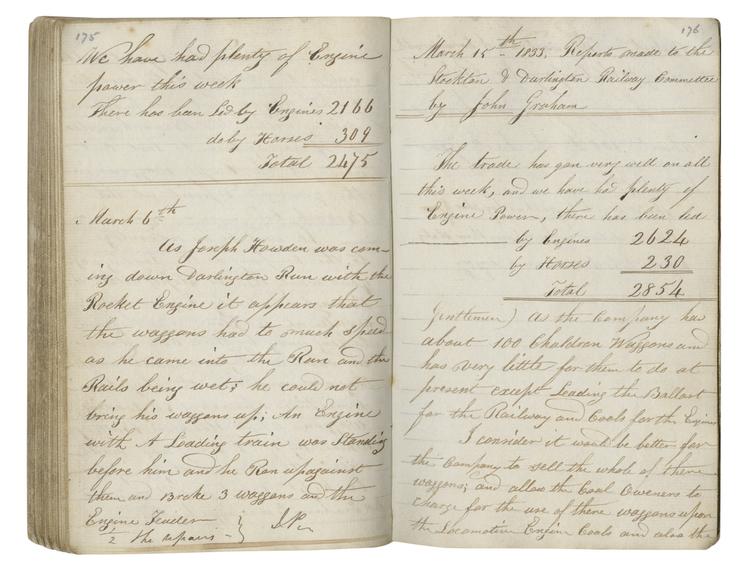 175
We have had plenty of Engine
power this week
There has been Led by Engines 2166
do by Horses 309
Total 2475
March 6th
As Joseph Howden was com-
ing down Darlington Run with the
Rocket Engine it appears that
the waggons had to much speed
as he came into the Run and the
Rails being wet; he could not
bring his waggons up; An Engine
with A Loading train was Standing
before him and he Ran up against
them and Broke 3 waggons and the
Engine Tender
1/2 the repairs -
176
March 15th - 1833. Reports made to the
Stockton & Darlington Railway Committee
by John Graham
The trade has gon very well on all
this week, and we have had plenty of
Engine Power, there has been led
by Engines 2624
by Horses 230
Total 2854
Gentlemen) As the Company has
about 100 Chaldron Waggons and
has very little for them to do at
present except Leading the Ballast
for the Railway and Coals for the Engines
I consider it would be better for
the Company to sell the whole of there
waggons; and allow the Coal Oweners to
charge for the use of there waggons upon
the Locomotive Engine Coals and also the